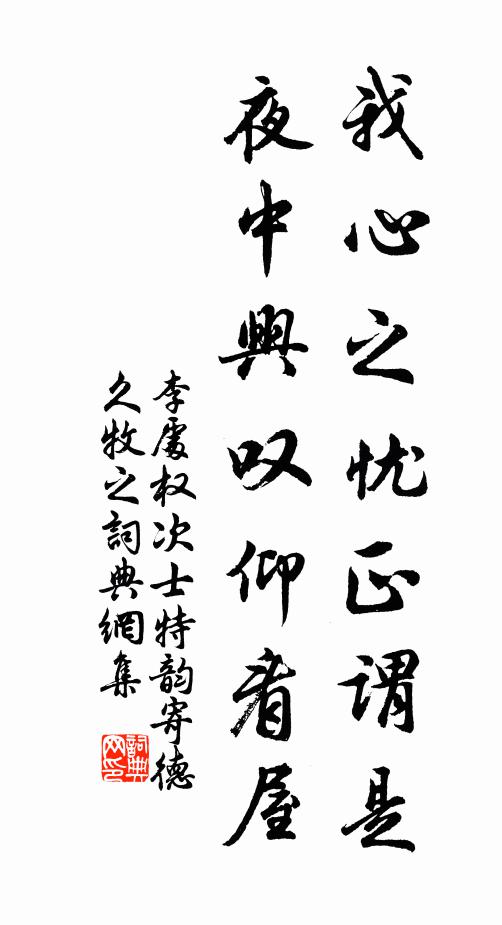 我心之忧正谓是
夜中興叹仰看屋
李處权次士特韵寄德
久牧之詞典網集
詞典网印